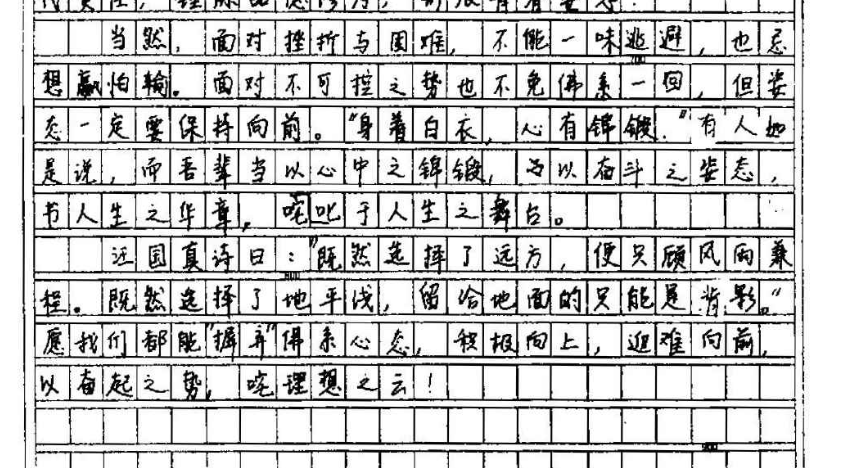 当然，面对挫折与困难，不能一味逃避，也忌
想赢怕输。面对不可控之势也不免佛系一回，但姿
态一定要保持向前。“身着白衣，心有锦缎。”有人如
是说，而吾辈当以心中之锦缎，当以奋斗之姿态，
书人生之华章，咤叱于人生之舞台。
汪国真诗曰：“既然选择了远方，便只顾风雨兼
程。既然选择了地平线，留给地面的只能是背影。”
愿我们都能“摒弃”佛系心态，积极向上，迎难向前，
以奋起之势，咤理想之云！